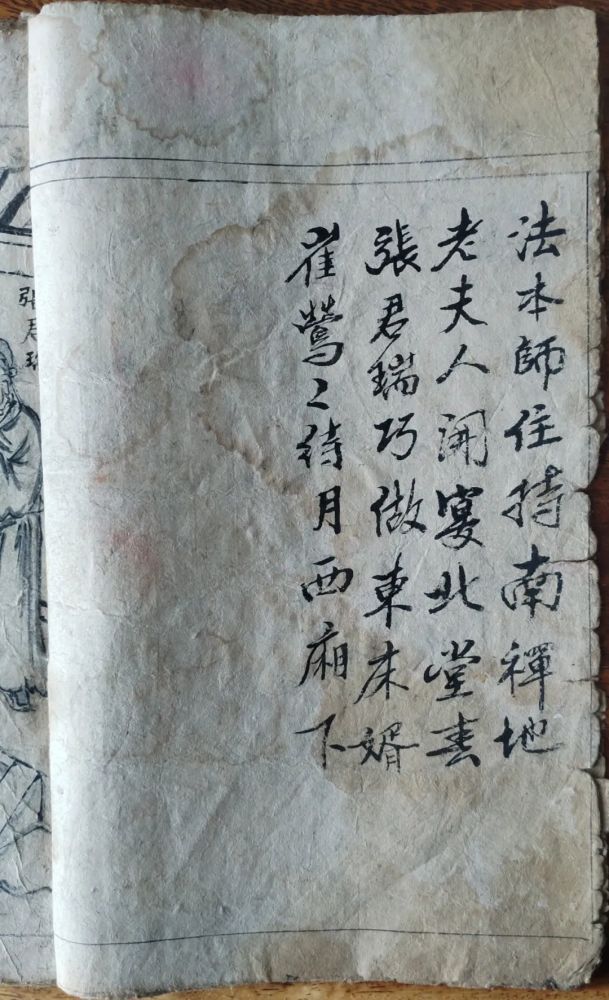 法本師住持南禪地
老夫人開宴北堂春
張君瑞巧做東床婿
崔鶯〻待月西廂下
張君瑞